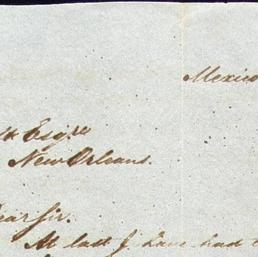 Mexico
Esqre
New Orleans.
ear Sir.
At last I have had